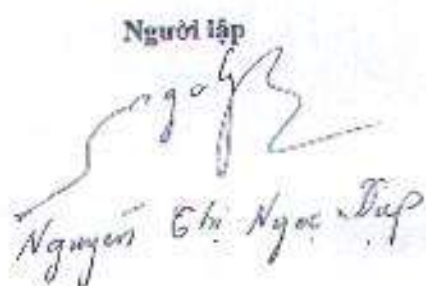 Người lập
Nguyễn Thị Ngọc